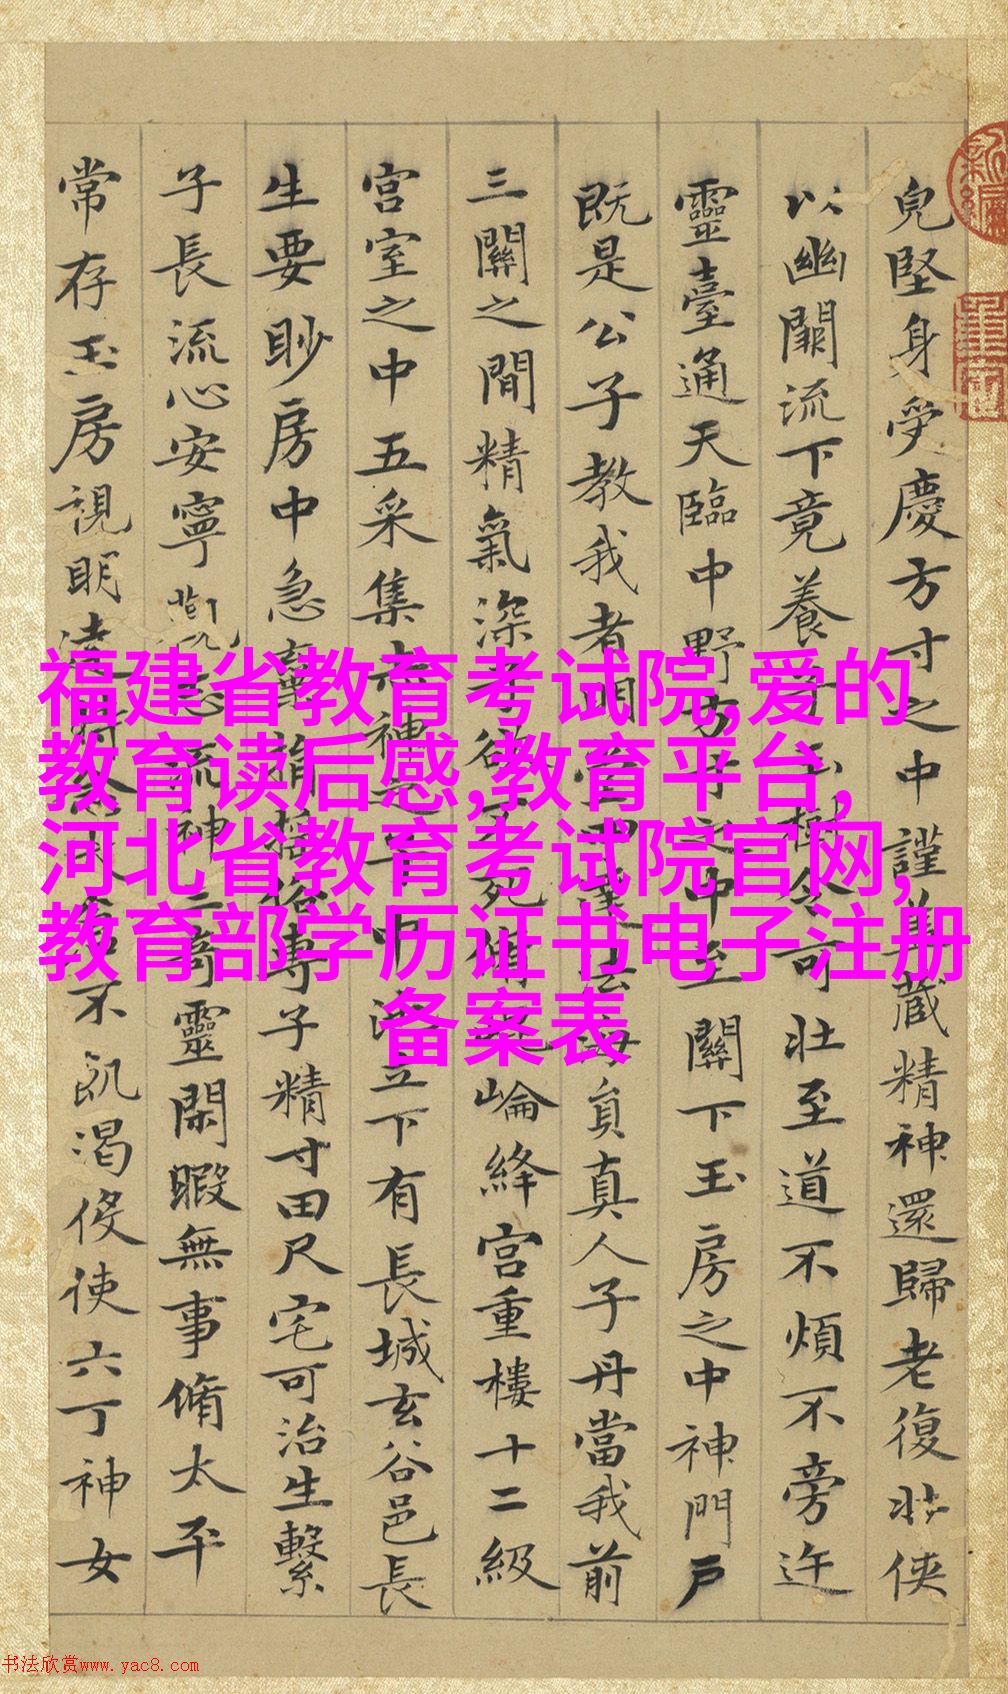 兒堅身受慶方寸之中謹蓋藏精神還歸老復壯俠
以幽闕流下竟養子玉樹令可壯至道不煩不旁迕
靈臺通天臨中野方寸之中至關下玉房之中神門戶
既是公子教我者明堂四達法海員真人子丹當我前
三關之間精氣深子欲不死脩崑崙絳宮重樓十二級
宮室之中五采集赤神之子中池立下有長城玄谷邑長
生要眇房中急棄捐搖俗專子精寸田尺宅可治生繫
子長流心安寧志流神三奇靈閑暇無事脩太平
常存玉房視明達時念大倉不飢渴役使六丁神女
福建省教育考试院,爱的
教育读后感,教育平台,
河北省教育考试院官网,
教育部学历证书电子注册
备案表
书法欣赏www.yac8.com